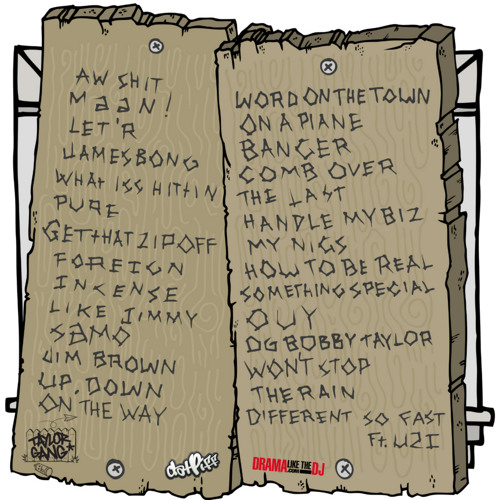 AW SHIT
MAAN!
LET'R
JAMES BONG
WHAT ISS HITTIN
PURE
GET THAT ZIP OFF
FOREIGN
INCENSE
LIKE JIMMY
SAMO
JIM BROWN
UP, DOWN
ON THE WAY
TAYLOR
GANG
datPiff
WORD ON THE TOWN
ON A PLANE
BANGER
COMB OVER
THE LAST
HANDLE MY BIZ
MY NIGS
HOW TO BE REAL
SOMETHING SPECIAL
OUY
OG BOBBY TAYLOR
WON'T STOP
THE RAIN
DIFFERENT SO FAST
Ft. UZI
DRAMA LIKE THE DJ
.COM